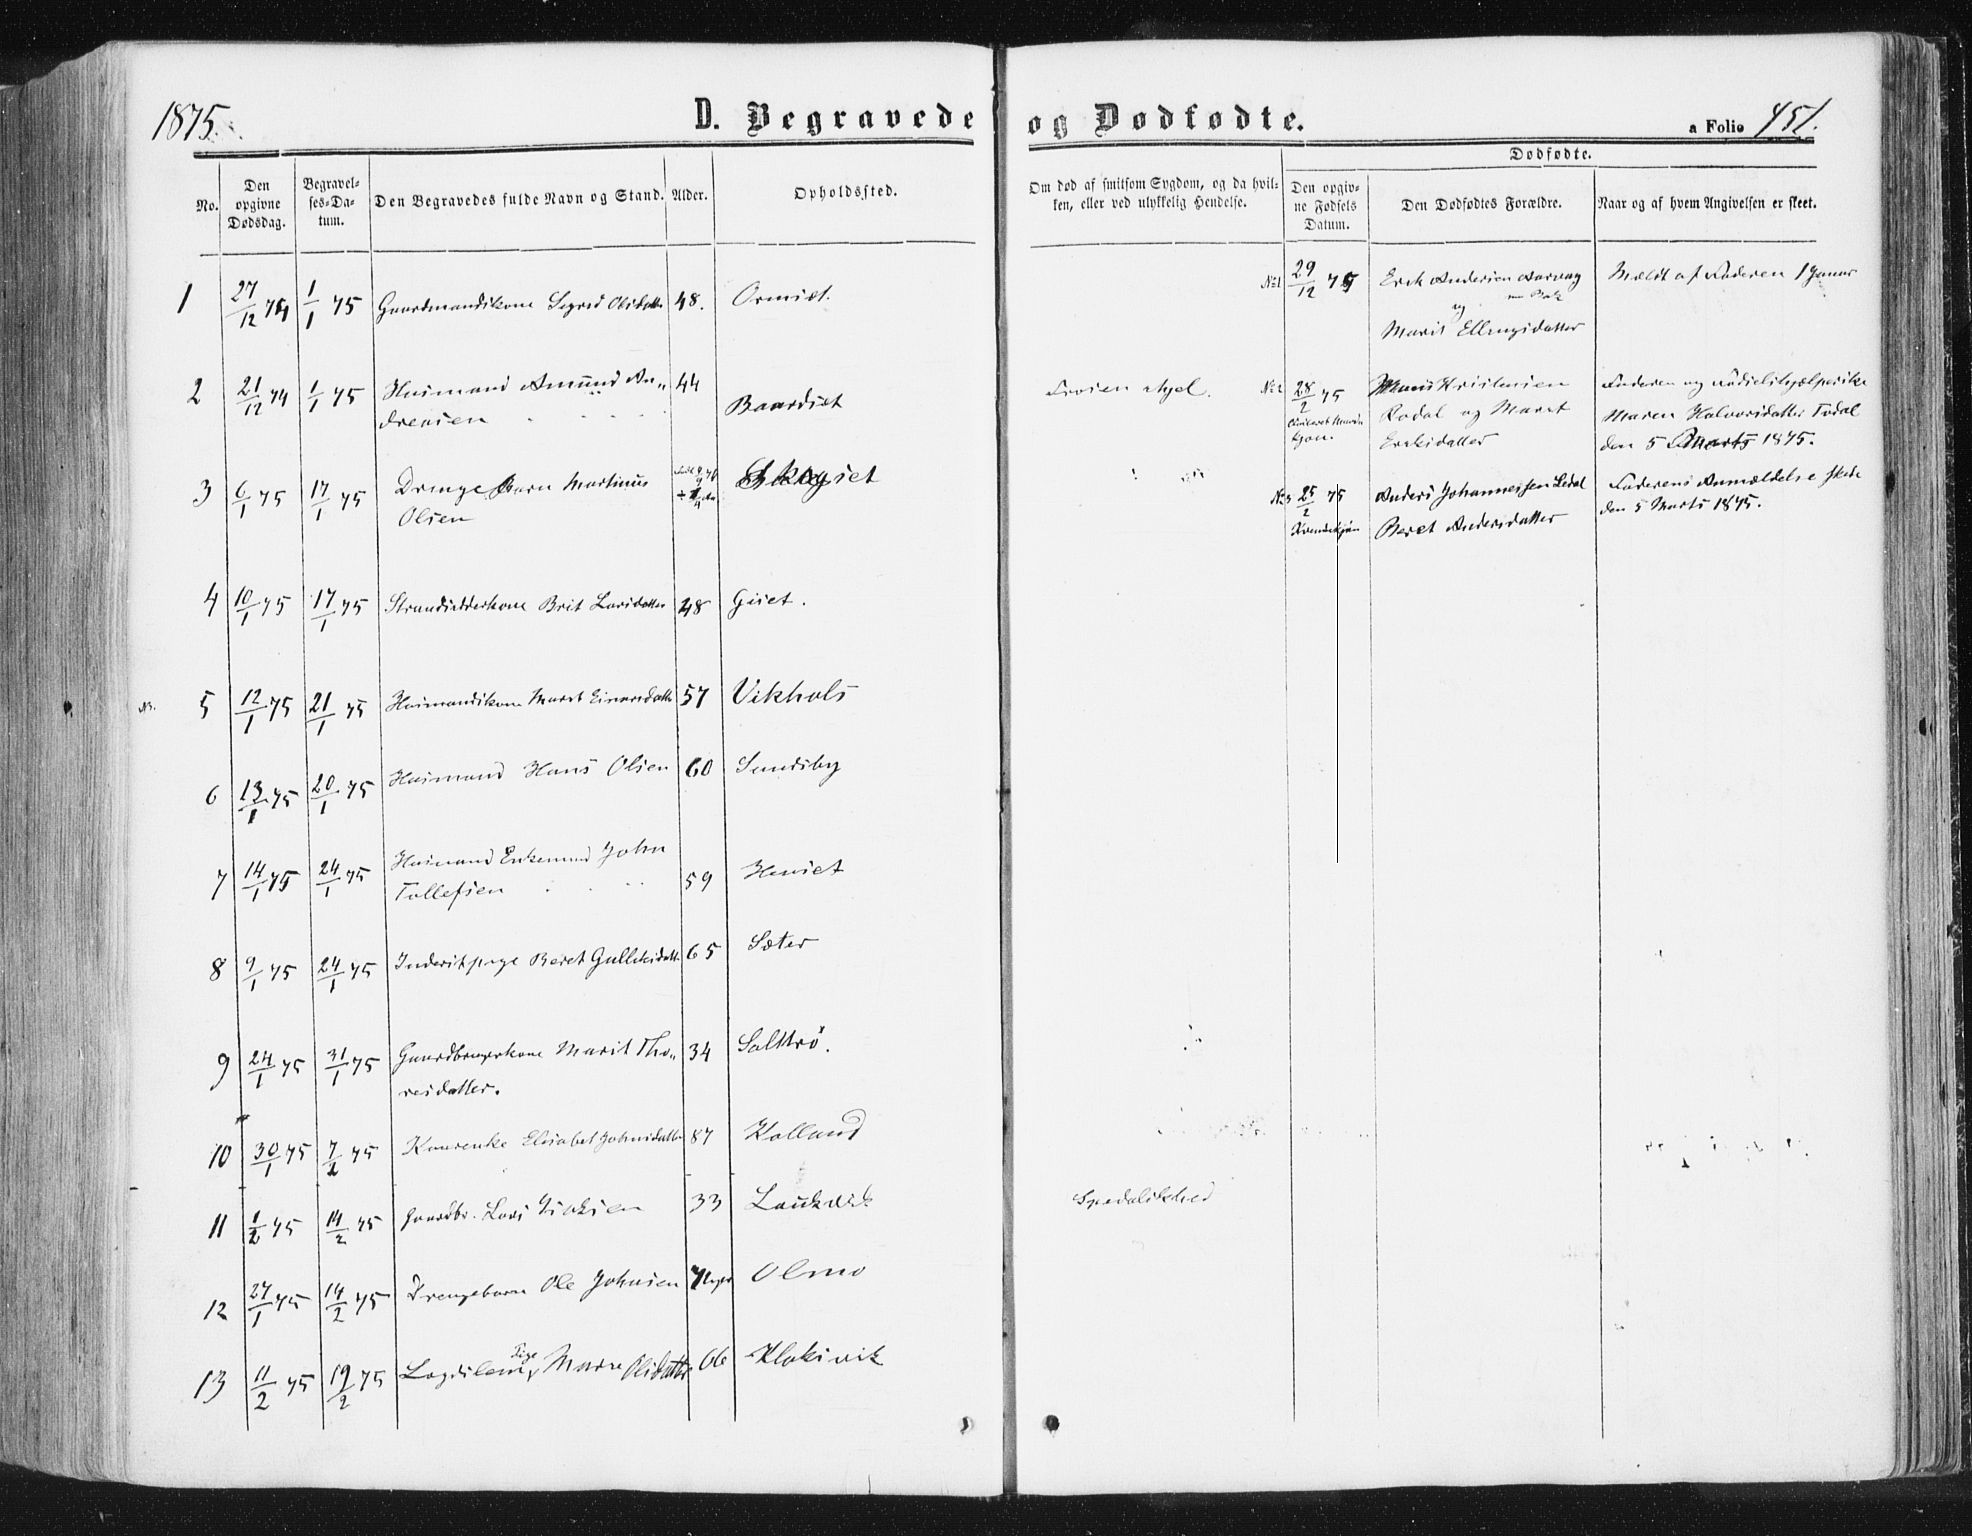 1875.
D. Begravede og Dødfødte.
a Folio 451.
No.
Den opgivne Dødsdag.
Begravelses-Datum.
Den Begravedes fulde Navn og Stand.
Alder.
Opholdssted.
Om død af smitsom Sygdom, og da hvilken, eller ved ulykkelig Hendelse.
Dødfødte.
Den opgivne Fødsels Datum.
Den Dødfødtes Forældre.
Naar og af hvem Angivelsen er skeet.
1 27/12 74 1/1 75 Gaardmandskone Sigrid Olsdatter 48. Ormset.
No 1 29/12 74 Erik Andersen Aarvag
og
Marit Ellingsdatter
Meldt af Faderen 1 Januar
2 21/12 74 1/1 75 Husmand Amund An-
dreasen 44 Baardset
No 2 28/2 75 Kristensen
Rodal og Maret
Eriksdatter
Faderen og Fødselshjælperske
Maren Halvorsdatter Todal
den 5 Marts 1875.
3 6/1 75 17/1 75 Drengebarn Martinus
Olsen Skogset
No 3 25/2 75 Anders Johannessen Ledal
Beret Andersdatter
Faderens Anmeldelse skede
den 5 Marts 1875.
4 10/1 75 17/1 75 Strandsidderkone Brit Larsdatter 48 Giset.
5 12/1 75 21/1 75 Husmandskone Maret Einarsdatter 57 Vikhals
6 13/1 75 20/1 75 Husmand Hans Olsen 60 Sundsby
7 14/1 75 24/1 75 Husmand Enkemand John
Tollefsen 59 Henset
8 9/1 75 24/1 75 Inderstpige Beret Gulleksdatter 65 Sæter
9 24/1 75 31/1 75 Gaardbrugerkone Marit Tho-
resdatter. 34 Saltrø.
10 30/1 75 7/2 75 Kaarenke Elisabet Johnsdatter 87 Kolland
11 1/2 75 14/2 75 Gaardbr. Lars 33 Laukvik
Spedalskhed
12 27/1 75 14/2 75 Drengebarn Ole Johnsen Olmo
13 11/2 75 19/2 75 Lægdslem Pige Maren Olsdatter 66 Kloksvik